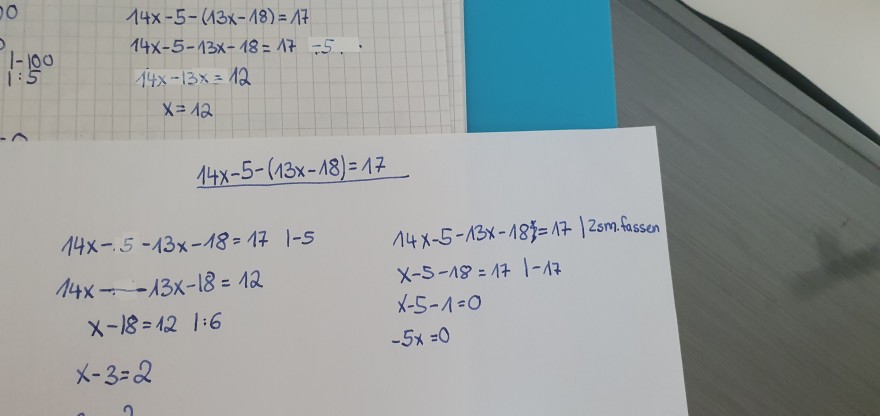 00
|-100
|:5
14x-5-(13x-18)=17
14x-5-13x-18=17 -5
14x-13x=12
x=12
14x-5-(13x-18)=17
14x-5-13x-18=17 |-5
14x-13x-18=12
x-18=12 |:6
x-3=2
14x-5-13x-18=17 | Zsm.fassen
x-5-18=17 |-17
x-5-1=0
-5x=0